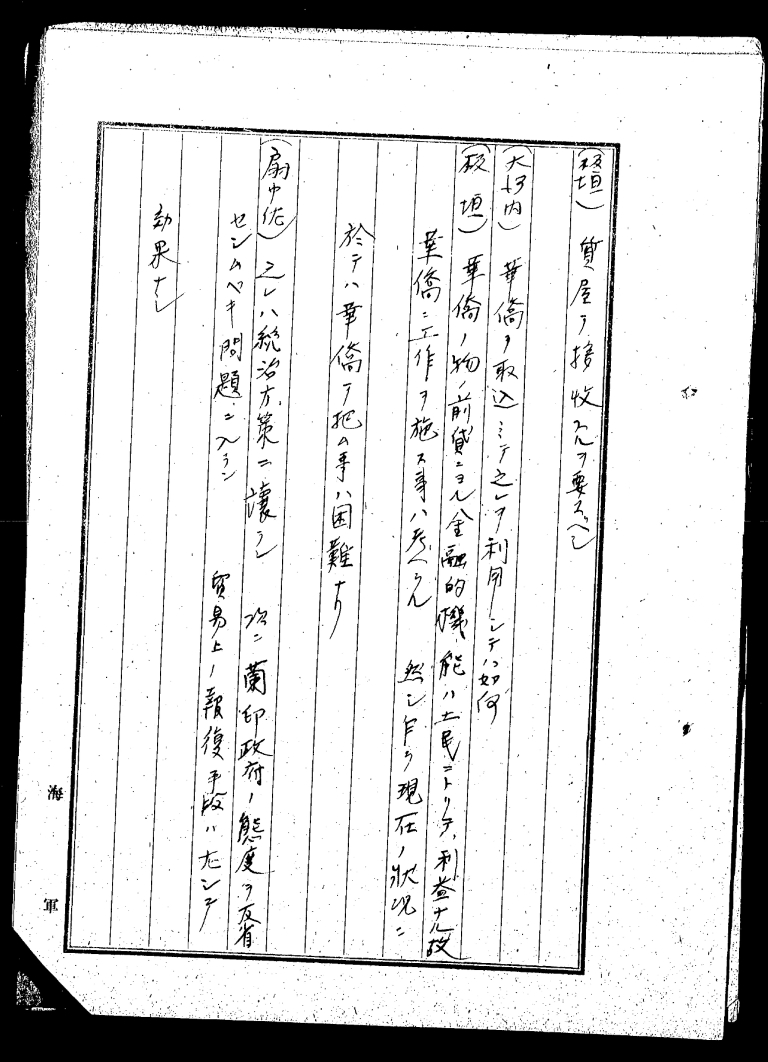 （板垣）質屋ヲ接收スルヲ要スベシ
（大河内）華僑ヲ取込ミテ之レヲ利用シテハ如何
（板垣）華僑ノ物ノ前貸ニヨル金融的機能ハ土民ニトリテ利益ナル故
華僑ニ工作ヲ施ス事ハ考ヘラル 然シ乍ラ現在ノ狀況ニ
於テハ華僑ヲ把ム事ハ困難ナリ
（扇中佐）之レハ統治方策ニ讓ラン 次ニ蘭印政府ノ態度ヲ反省
センムベキ問題ニ入ラン 貿易上ノ報復手段ハ大シテ
効果ナシ
海軍